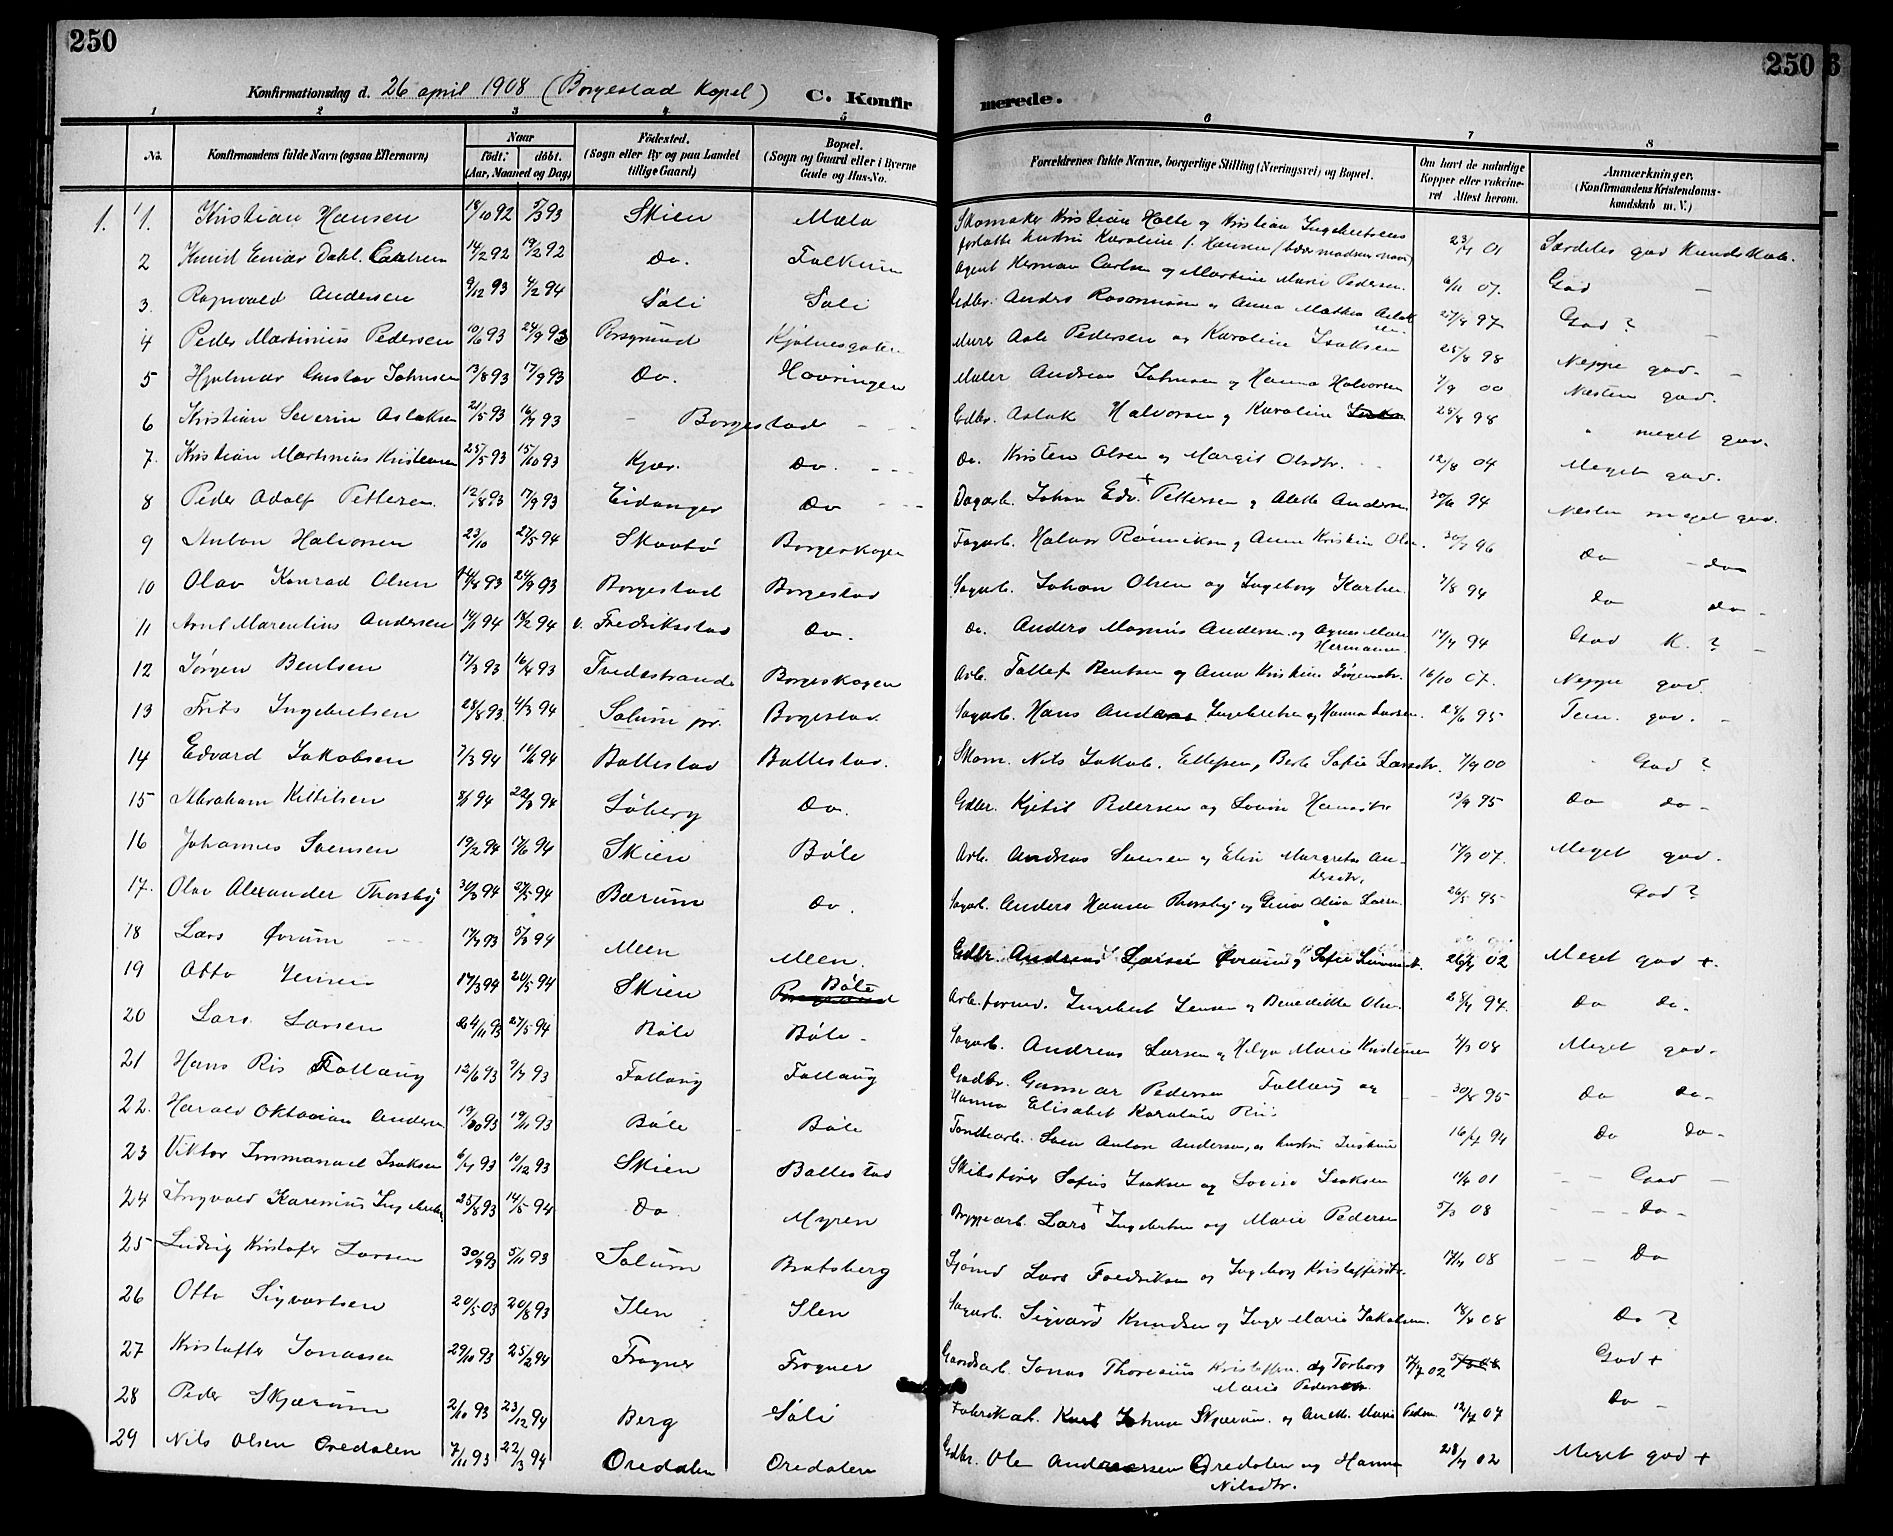 250
250
Konfirmationsdag d. 26 april 1908 (Borgestad Kapel) C. Konfir
merede.
1 2 3 4 5 6 7 8
No. Konfirmandens fulde Navn (ogsaa Efternavn) Naar født: døbt. (Aar, Maaned og Dag) Fødested. (Sogn eller By og paa Landet tillige Gaard) Bopæl. (Sogn og Gaard eller i Byerne Gade og Hus-No. Forældrenes fulde Navne, borgerlige Stilling (Næringsvei) og Bopæl. Om havt de naturlige Kopper eller vakcineret Attest herom. Anmærkninger. (Konfirmandens Kristendomskundskab m. V.)
1. 1. Kristian Hansen 18/10 92 5/3 93 Skien Mæla Skomaker Kristian Holte og Kristian Ingebretsens 23/4 01 Særdeles god Kundskab.
forlatte hustru Karoline f. Hansen
2 Knud Einar Dahl Carlsen 14/2 92 19/2 92 Do. Falkum Agent Herman Carlsen og Martine Marie Pedersen 6/11 07. God
3. Ragnvald Andersen 9/12 93 4/2 94 Søli Søli Gdbr. Anders Rasmussen og Anna Mathea 27/4 97 God?
4 Peder Martinius Pedersen 10/6 93 24/9 93 Porsgrund Kjølnesgaten Murer Pedersen og Karoline Isaksen 25/8 98 Neppe god.
5 Hjalmar Gustav Johnsen 13/8 93 17/9 93 Do. Hovringen Maler Andreas Johnsen og Hanna Halvorsen 7/9 00 Næsten god.
6 Kristian Severin Aslaksen 21/5 93 16/7 93 Borgestad Gdbr. Aslak Halvorsen og Karoline 25/8 98 " meget god.
7. Kristian Martinius Kristensen 25/5 93 15/10 93 Kjær. Do. Do. Kristen Olsen og Margit Olsdtr. 12/8 04 Meget god.
8 Peder Adolf Pettersen 12/8 93 17/9 93 Eidanger Do Dagarb. Johan Edv. Pettersen og Alette Andersen 30/6 94 Næsten meget god.
9 Anton Halvorsen 23/10 27/5 94 Skaatø Borgeskogen Fagarb. Halvor og Anne Kristin Olsen 30/9 96 Do do
10 Olav Konrad Olsen 93 24/9 93 Borgestad Borgestad Sagarb. Johan Olsen og Ingeborg Karlsen 7/8 94 Do do
11 Arnt Marentius Andersen 14/1 94 18/2 94 v. Fredriksstad Do. Do. Anders Magnus Andersen og Agnes Marie Hermansen 17/4 94 God K.?
12 Jørgen Bentsen 17/3 93 16/4 93 Tvedestrand Borgeskogen Arb. Tallef Bentsen og Anna Kristine Jørgensdtr. 16/10 07. Neppe god.
13 Frits Ingebretsen 28/8 93 4/3 94 Solum pr. Borgestad Sagarb. Hans Anders Ingebretsen og Hanna Larsen. 28/6 95 Tem. god.
14 Edvard Jakobsen 7/3 94 94 Ballestad Ballestad. Skom. Nils Jakob. Ellefsen, Berte Sofie Larsdtr. 7/9 00 God?
15 Abraham Kittilsen 94 94 Søberg Do. Gdbr. Kjetil Pedersen og Lovise Hansdtr 13/9 95 Do do
16 Johannes Svensen 19/2 94 17/6 94 Skien Bøle Arb. Andreas Svensen og Elise Margrethe Andersdtr. 17/9 07. Meget god.
17. Olav Alexander Thorsby 94 94 Bærum Do. Sagarb. Anders Hansen Thorsby og Gina Olava Larsen 26/5 95 God?
18 Lars Øvrum 17/7 93 94 Meen Meen. Gdbr. Andreas Larsen Øvrum og Sofie 02 Meget god +.
19 Otto Jensen 17/3 94 20/5 94 Skien Bøle Arb.formd. Ingebret Jensen og Benedikte Olsen 28/7 94. Do do.
20 Lars Larsen 24/11 93 27/5 94 Bøle Bøle Sagarb. Andreas Larsen og Helga Marie Kristensen 2/3 08 Meget god.
21 Hans Ris Follaug 12/6 93 9/7 93 Follaug Follaug Gaardbr. Gunnar Pedersen Follaug og Hanna Elisabet Karoline Riis 30/8 95 Do do
22. Harald Oktavian Andersen 19/10 93 19/11 93 Bøle Bøle Tomtearb. Sven Anton Andersen, og hustru 16/4 94 Do do
23 Viktor Immanuel Isaksen 6/4 93 10/12 93 Skien Ballestad Skibsfører Sofus Isaksen og Lovise Isaksen 01 God
24 Ingvald Karenius Ingebretsen 25/8 93 14/5 94 Do Myren Bryggearb. Lars Ingebretsen og Marie Pedersen 5/3 08 Do
25 Ludvig Kristofer Larsen 30/9 93 5/11 93 Solum Bratsberg Sjømd Lars Fredriksen og Ingeborg Kristoffersdtr. 17/4 08 Do
26 Otto Sigvartsen 20/5 03 20/8 93 Ilen Ilen Sagarb. Sigvard Knudsen og Inger Marie Jakobsen. 18/4 08 Do?
27 Kristoffer Jonassen 29/10 93 25/2 94 Frogner Frogner Gaardsarb. Jonas Thoresius Kristoffersen og Torborg Marie Pedersdtr. 02 God +
28 Peder Skjærum 2/10 93 23/12 94 Berg Søli Fabrikarb. Karl Johan Skjærum og Anette Marie Peders. 12/4 07 Do
29 Nils Olsen Oredalen 7/11 93 22/3 94 Oredalen Oredalen Gdbr. Ole Andreassen Oredalen og Hanna Nilsdtr. 28/7 02 Meget god +